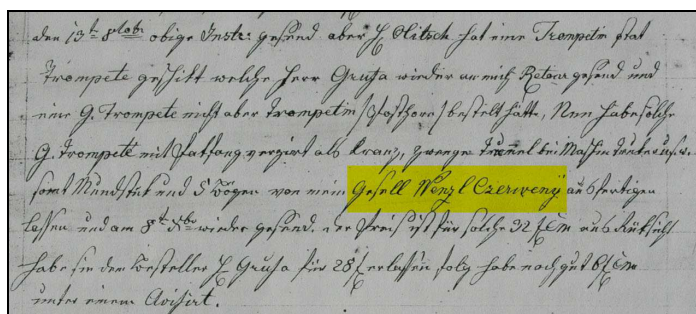 den 13t 8tober obige Instr: gesend aber H. Olitsch hat eine Trompetin stat
Trompete geschikt welche Herr Grusa wieder an mich Retour gesend und
eine G. Trompete nicht aber Trompetin /Posthorn/ bestelt hätte, Nun habe solche
G. Trompete mit verzirt als Kranz, Zwenge bei Maschin
samt Mundstük und 5 Bögen von mein Gesell Wenzl Czerweny ausfertigen
lassen und am 8t wieder gesend. der Preis ist für solche 32 f CM aus Rüksicht
habe sie den Besteller H. Grusa für 28 f erlassen folg habe noch gut 6 f CM
unter einem Avisirt.